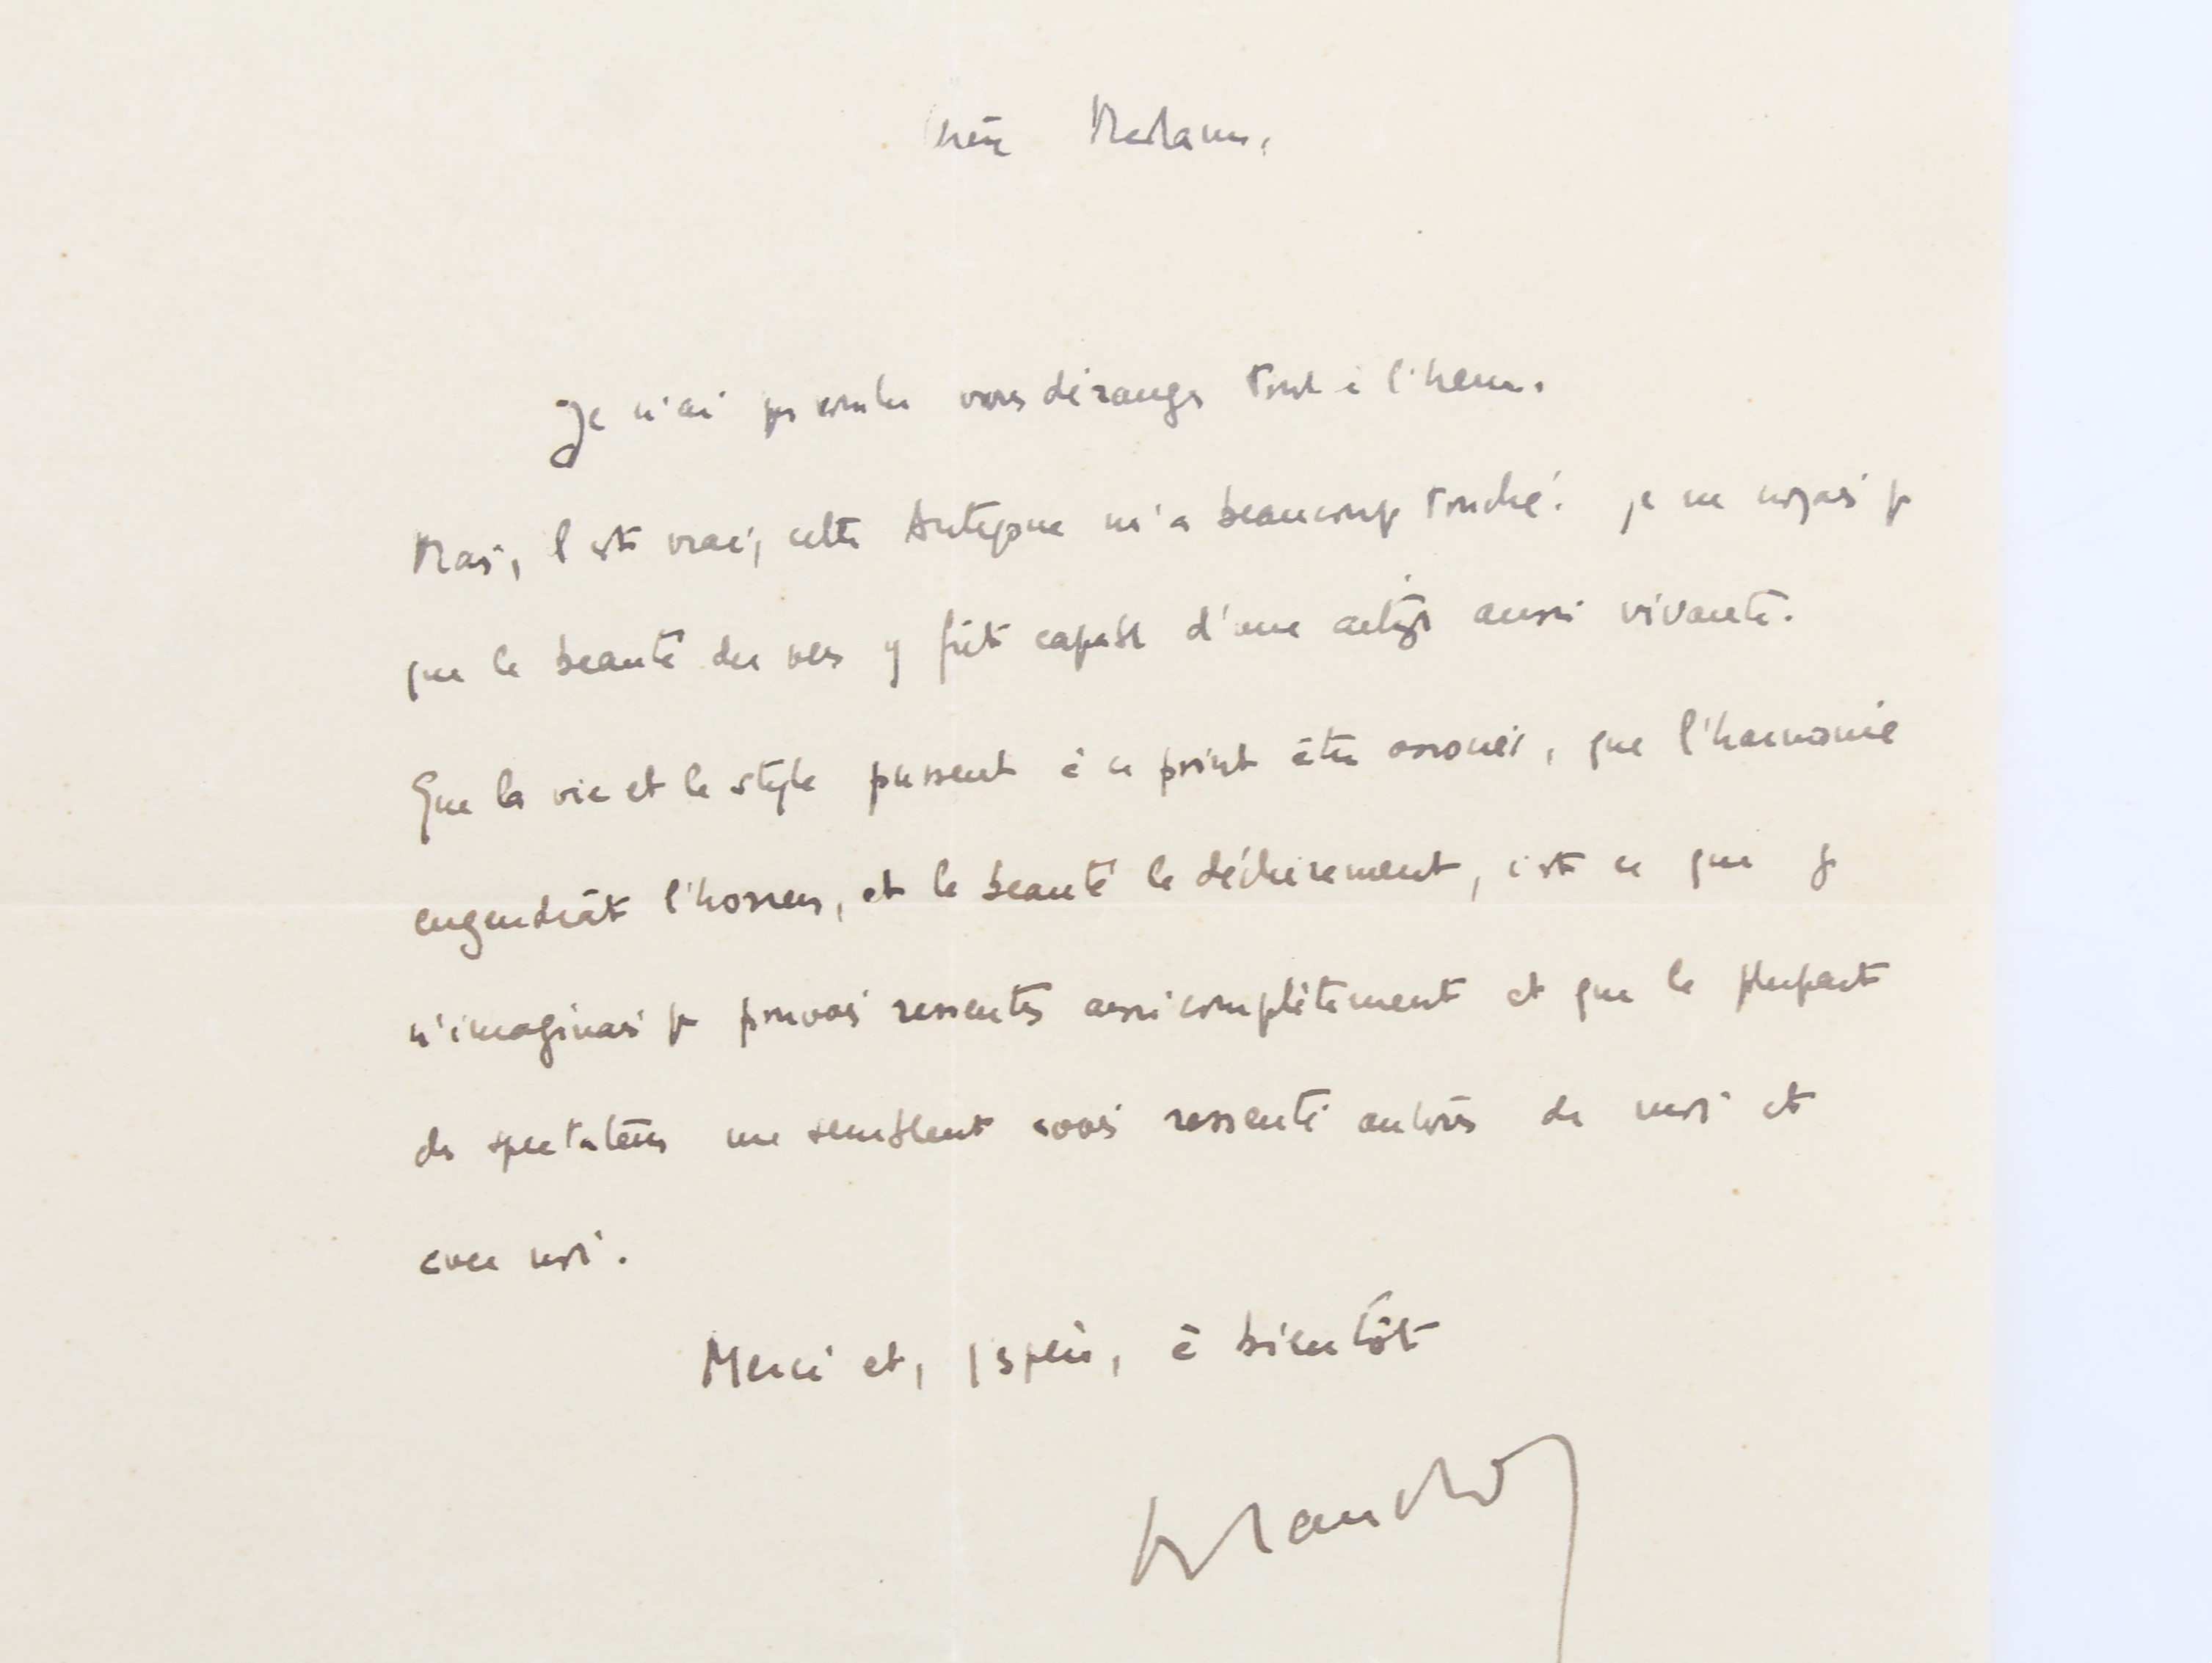 Chère Madame,
Je n'ai pas voulu vous déranger tout à l'heure.
Mais, c'est vrai, cette Antigone m'a beaucoup touché. je ne croyais pas
que la beauté des vers y fût capable d'une action aussi vivante.
Que la vie et le style pussent à ce point être associés, que l'harmonie
engendrât l'horreur, et la beauté le déchirement, c'est ce que je
n'imaginais pas pouvoir ressentir aussi complètement et que la plupart
des spectateurs me semblent avoir ressenti autour de moi et
avec moi.
Merci et, j'espère, à bientôt